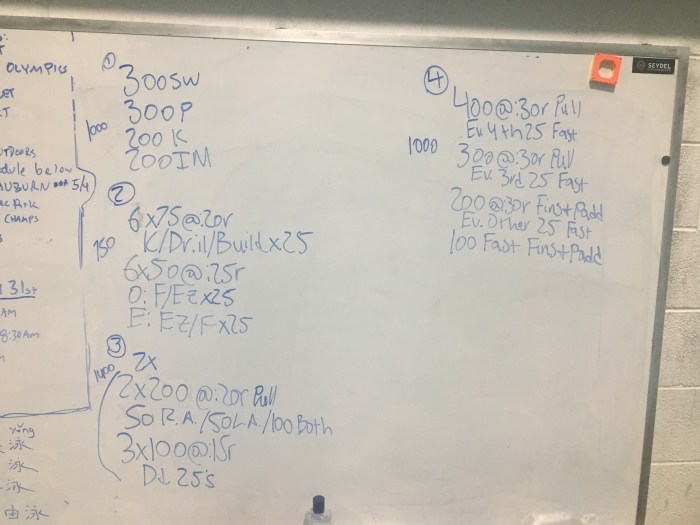 OLYMPICS
odule below
AUBURN 5/4
CHAMPS
31st
AM
8:30AM
yǒng
泳
泳
泳
由泳
①
300SW
300P
1000
200K
200IM
②
6x75@:20r
750
K/Drill/Buildx25
6x50@:25r
O: F/EZx25
E: EZ/Fx25
③
1400
2x
2x200 @:20r Pull
50 R.A./50L.A./100 Both
3x100@:15r
D↓ 25's
④
400@:30r Pull
Ev 4th 25 Fast
1000
300@:30r Pull
Ev. 3rd 25 Fast
200@:30r Fins+Padd
Ev. Other 25 Fast
100 Fast Fins+Padd
SEYDEL